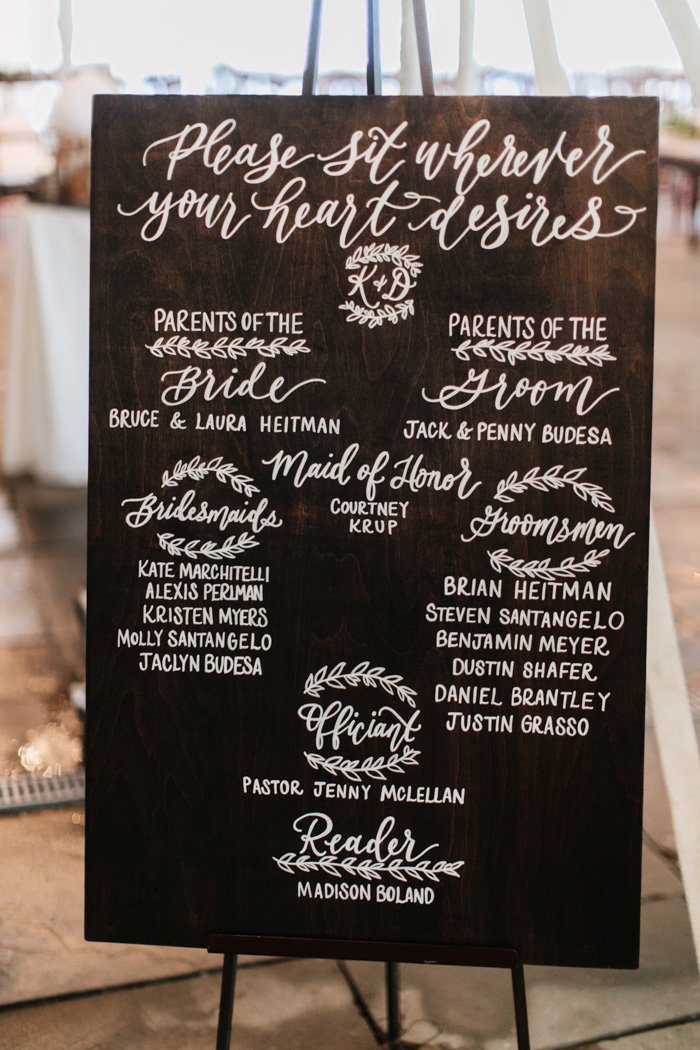 Please sit wherever
your heart desires
K+D
PARENTS OF THE
Bride
BRUCE & LAURA HEITMAN
PARENTS OF THE
Groom
JACK & PENNY BUDESA
Maid of Honor
COURTNEY
KRUP
Bridesmaids
KATE MARCHITELLI
ALEXIS PERLMAN
KRISTEN MYERS
MOLLY SANTANGELO
JACLYN BUDESA
Groomsmen
BRIAN HEITMAN
STEVEN SANTANGELO
BENJAMIN MEYER
DUSTIN SHAFER
DANIEL BRANTLEY
JUSTIN GRASSO
Officiant
PASTOR JENNY MCLELLAN
Reader
MADISON BOLAND